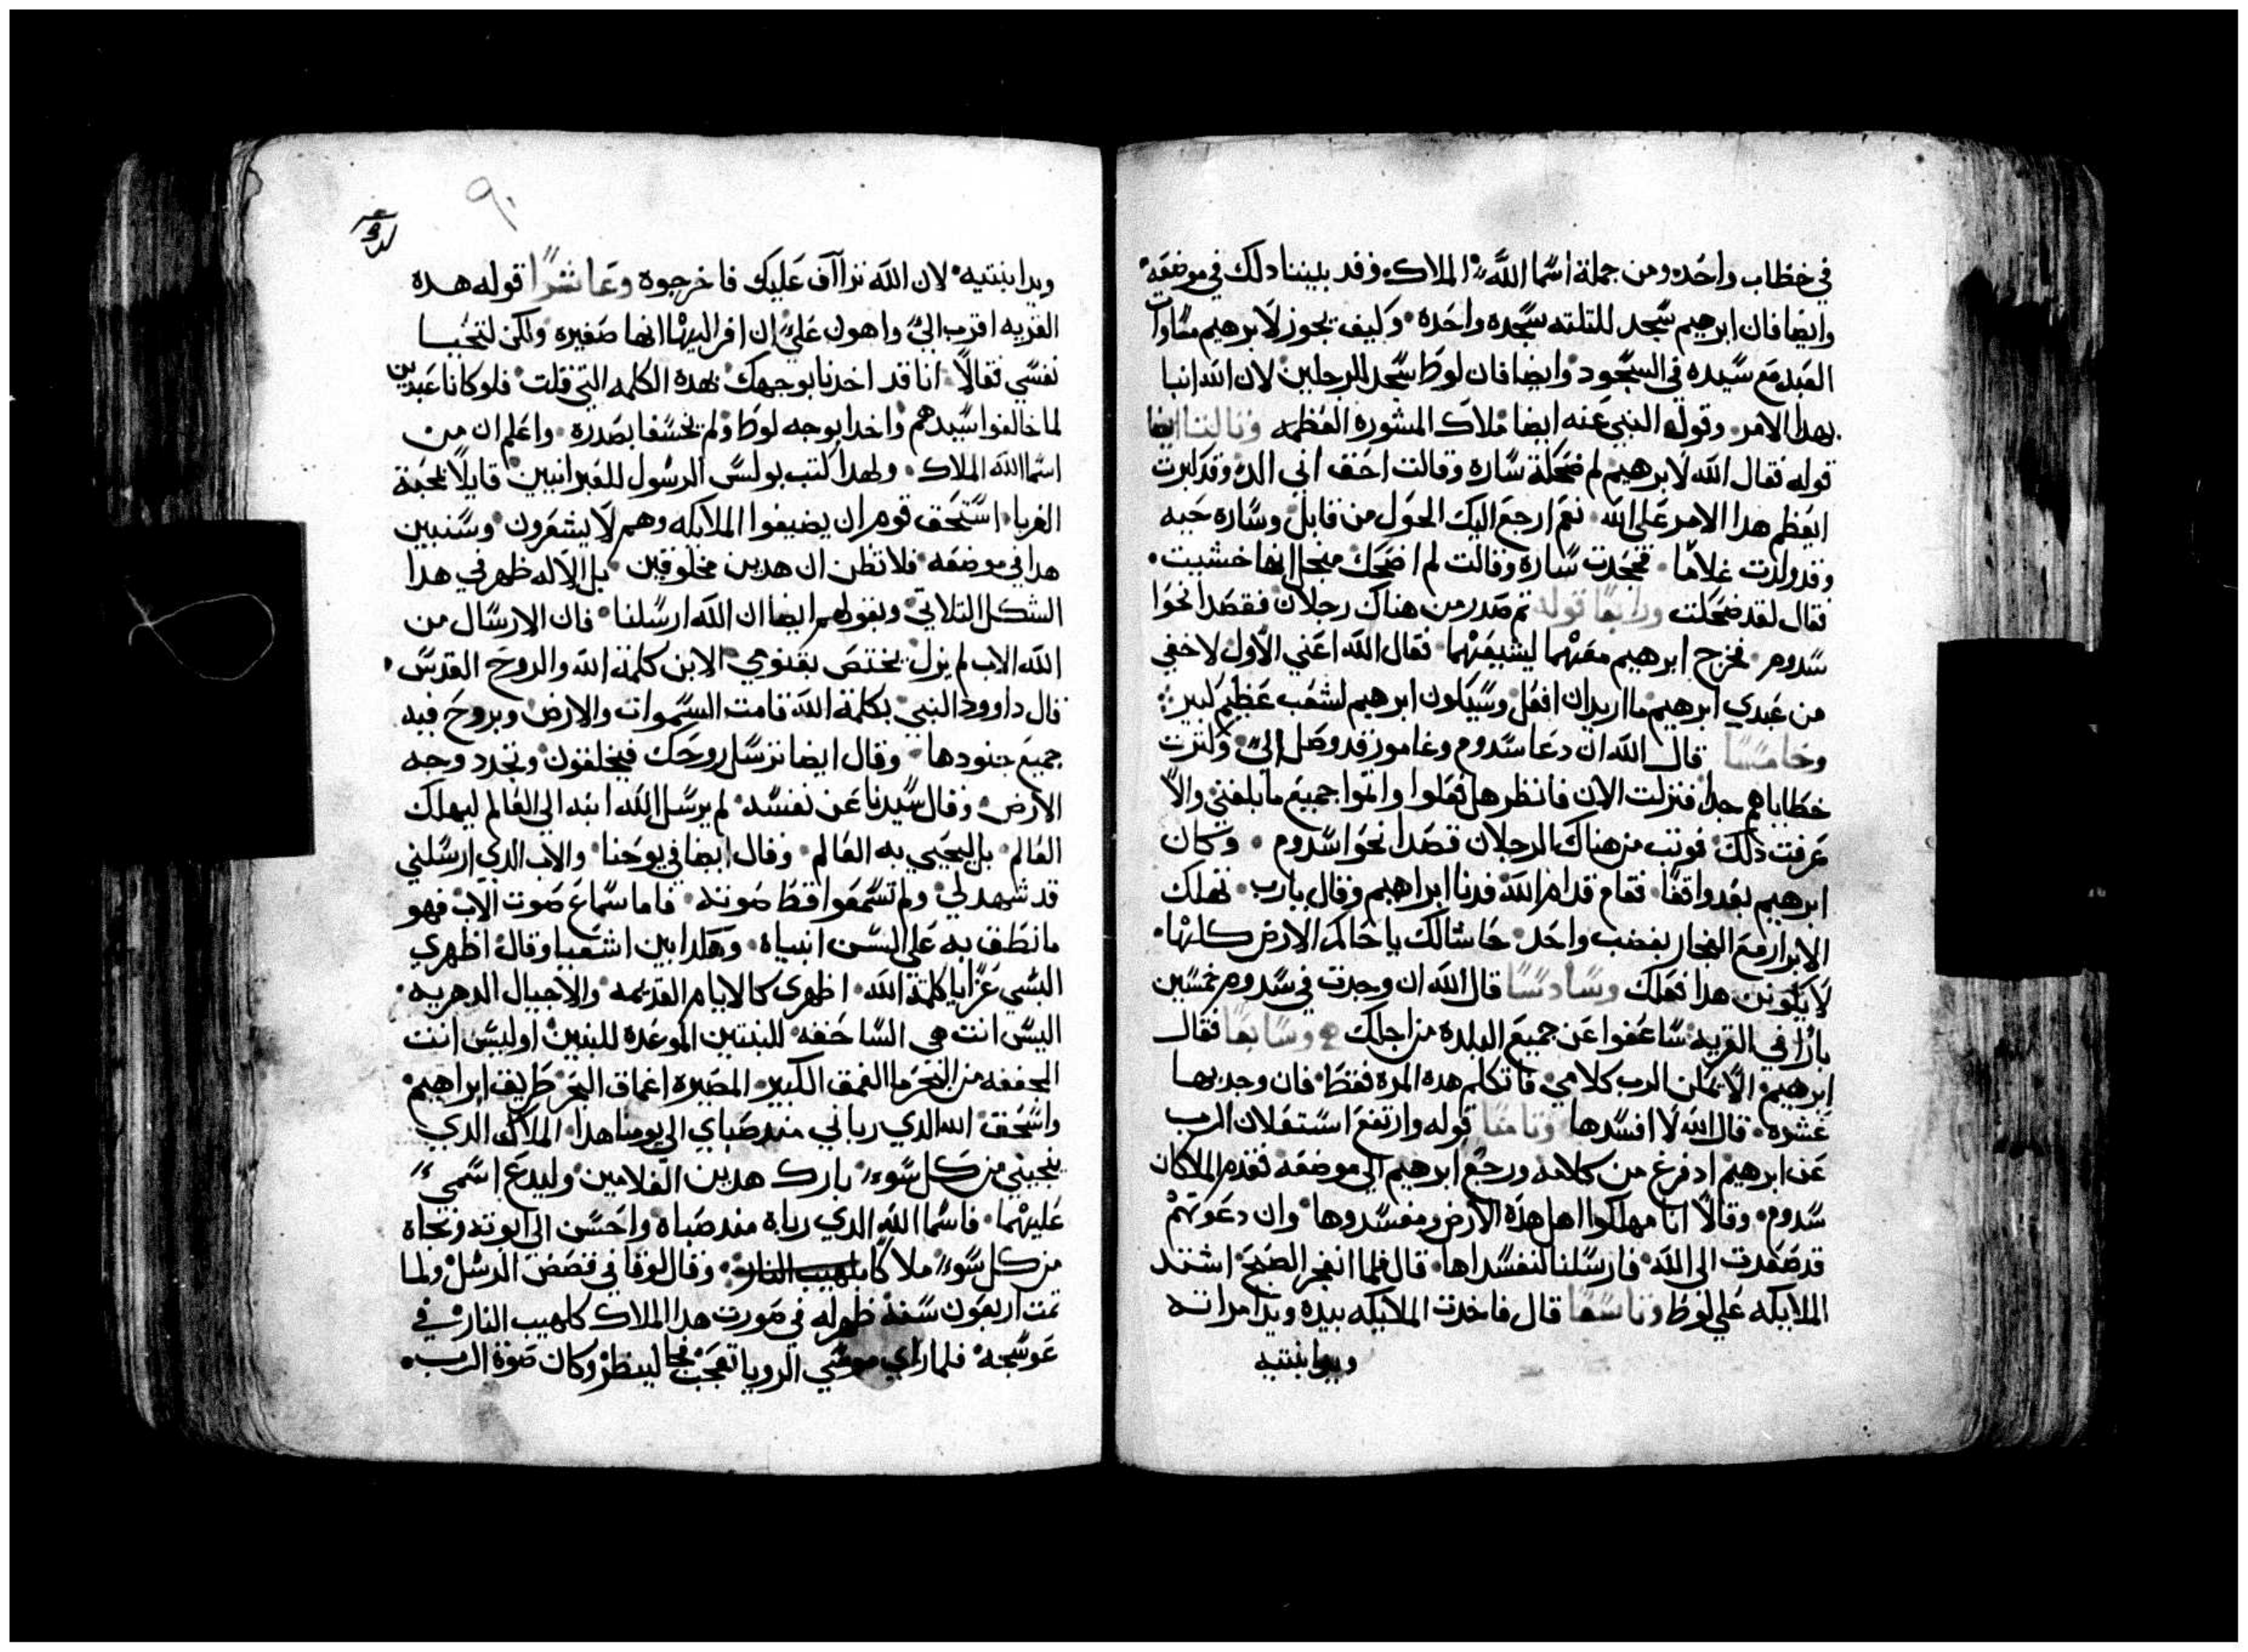 في خطاب واحد ومن جملة اسما الله الملاك وقد بيننا دلك في موضعه
وايضا فان ابرهيم سجد للتلته سجده واحده وكيف يجوز لابرهيم مساوات
العبد مع سيده في السجود وايضا فان لوط سجد للرجلين لان الله انبا
بهدا الامر وقوله النبي عنه ايضا ملاك المشوره العظمه وتالتا ايضا
قوله فقال الله لابرهيم لم ضحكة ساره وقالت احقف اني الد وقد كبرت
ايعظم هدا الامر على الله نعم ارجع اليك الحول من قابل وساره حيه
وقد ولدت غلاما فجحدت ساره وقالت لم اضحك منجل انها خشيت
فقال لقد ضحكت ورابعا قوله تم صدر من هناك رجلان فقصدا نحوا
سدوم فخرج ابرهيم معهما ليشيعهما فقال الله اعني الاول لا خفي
من عبدي ابرهيم ما اريد ان افعل وسيكون ابرهيم لشعب عظيم كبير
وخامسا قال الله ان دعا سدوم وغامور قد وصل الي وكترت
خطاياهم جدا فنزلت الان فانظر هل فعلوا واتموا جميع ما بلغني والا
عرفت دلك فوتب من هناك الرجلان قصدا نحوا سدوم وكان
ابرهيم بعد واقفا فقام قدام الله فدنا ابراهيم وقال يارب تهلك
الابرار مع الفجار بغضب واحد حاشا لك يا حاكم الارض كلها
لا يكونن هدا فعلك وسادسا قال الله ان وجدت في سدوم خمسين
بارا في القريه ساعفوا عن جميع البلده من اجلك وسابعا فقال
ابرهيم الا يمكن الرب كلامي فاتكلم هده المره فقط فان وجد بها
عشره قال الله لا افسدها وتامنا قوله وارتفع استعلان الرب
عن ابرهيم اد فرغ من كلامه ورجع ابرهيم الي موضعه فقدم الملاكان
سدوم وقالا انا مهلكوا اهل هذه الارض ومفسدوها وان دعوتهم
قد صعدت الى الله فارسلنا لنفسداها قال فلما انفجر الصبح اشتد
الملايكه علي لوط وتاسعا قال فاخدت الملايكه بيده ويد امراته
ويد ابنتيه
٩٠
ويد ابنتيه لان الله تراآف عليك فاخرجوه وعاشرا قوله هده
القريه اقرب الي واهون علي ان افر اليها انها صغيره ولكن لتحيا
نفسي فقالا انا قد اخدنا بوجهك بهده الكلمه التي قلت فلو كانا عبدين
لما خالفوا سيدهم واخدا بوجه لوط ولم يخسفا بصدره واعلم ان من
اسما الله الملاك ولهدا كتب بولس الرسول للعبرانيين قايلا بمحبة
الغربا استحق قوم ان يضيفوا الملايكه وهم لا يشعرون وسنبين
هدا في موضعه فلا تظن ان هدين مخلوقين بل الاله ظهر في هدا
الشكل التلاتي وبقولهم ايضا ان الله ارسلنا فان الارسال من
الله الاب لم يزل يختص بقنومي الابن كلمة الله والروح القدس
قال داوود النبي بكلمة الله قامت السموات والارض وبروح فيه
جميع جنودها وقال ايضا ترسل روحك فيخلقون وتجدد وجه
الارض وقال سيدنا عن نفسه لم يرسل الله ابنه الي العالم ليهلك
العالم بل ليحيي به العالم وقال ايضا في يوحنا والاب الدي ارسلني
قد شهد لي ولم تسمعوا قط صوته فاما سماع صوت الاب فهو
ما نطق به على السن انبياه وهكدا بين اشعيا وقال اظهري
البسي عزا يا كلمة الله اظهري كالايام القديمه والاجيال الدهريه
اليس انت هي الساحقه للبنتين الموعده للبنين اوليس انت
المجففه من البحر ما العمق الكبير المصيره اعماق البحر طريق ابراهيم
واسحق الله الدي رباني مند صباي الي يومنا هدا الملاك الدي
ينجيني من كل سوء بارك هدين الغلامين وليدع اسمي
عليهما فاسما الله الدي رباه مند صباه واحسن الى ابوته ونجاه
من كل سوء ملاكا وقال لوقا في قصص الرسل ولما
تمت اربعون سنة ظهر له في صورت هدا الملاك كلهيب النار في
عوسجه فلما راي موسي الرويا تعجب فجا لينظر وكان صوة الرب